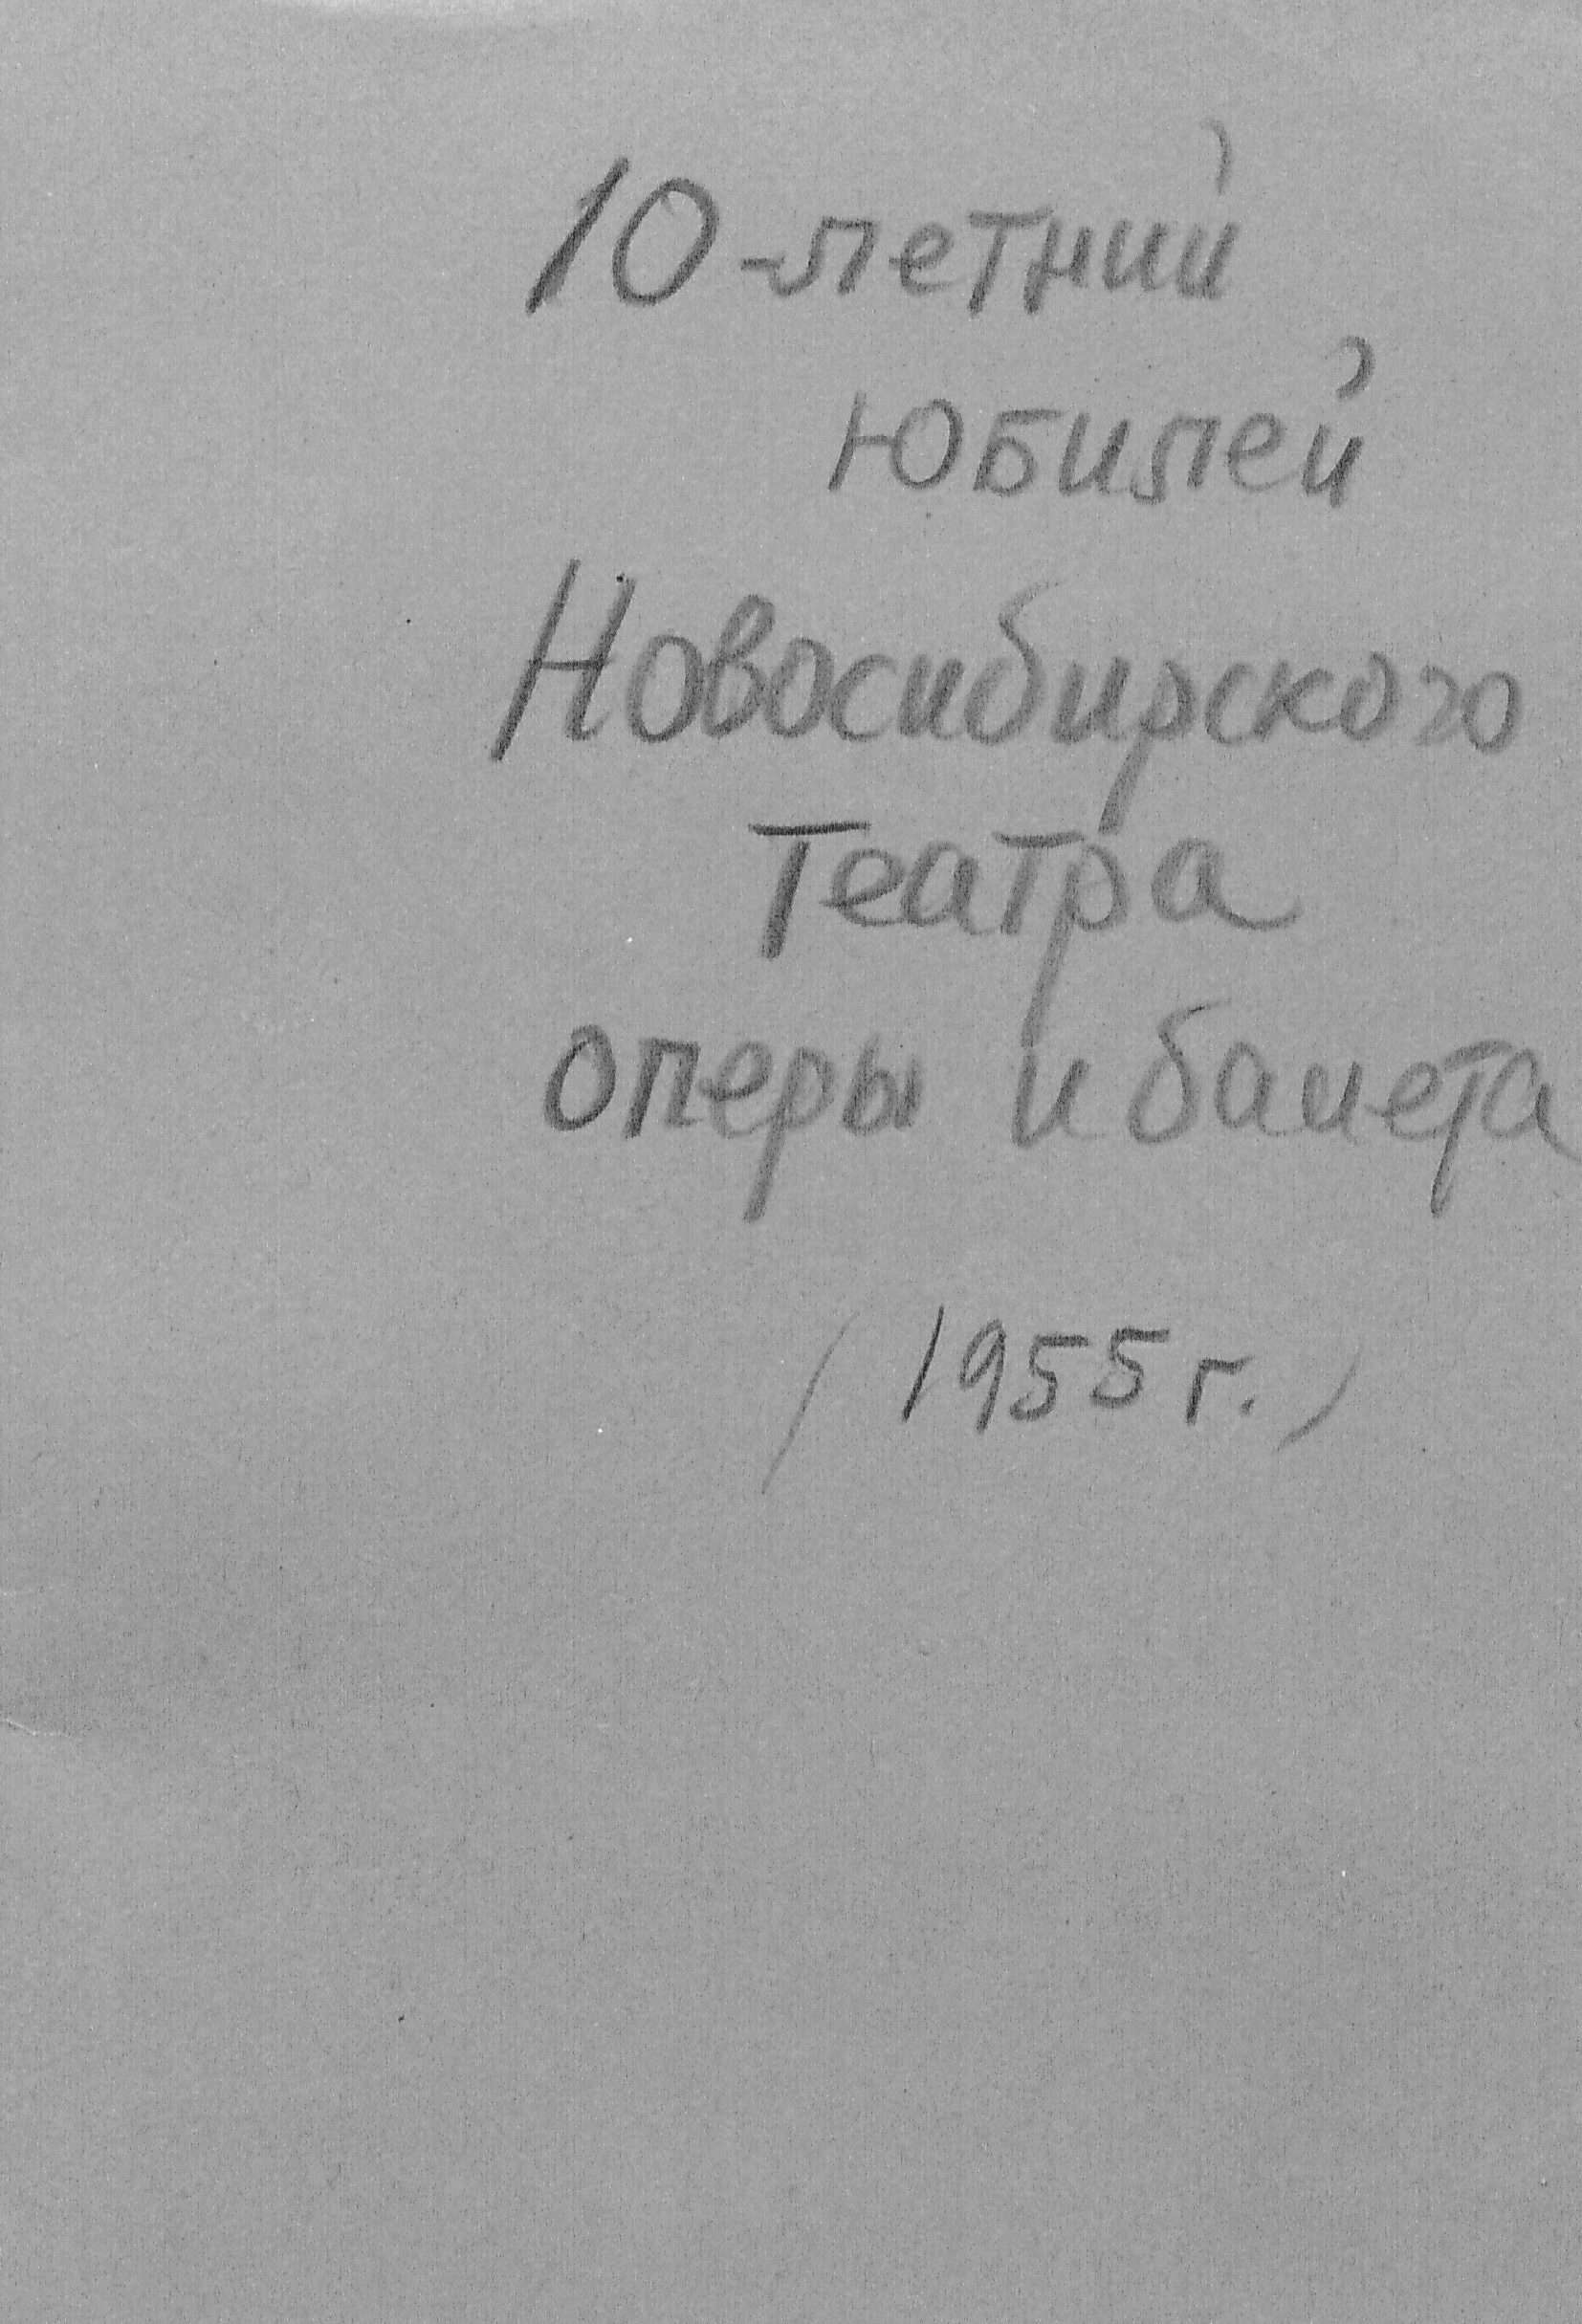 10-летний
юбилей
Новосибирского
театра
оперы и балета
(1955 г.)